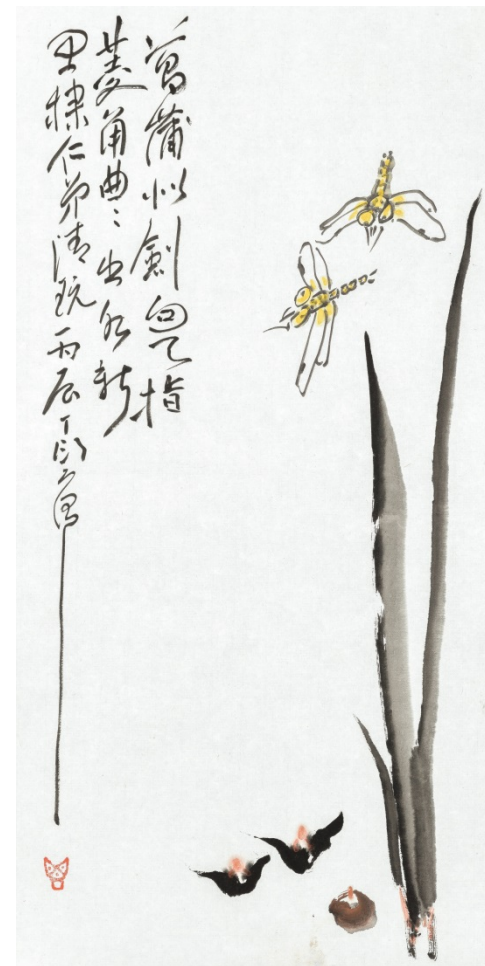 菖蒲似劍向天指
菱角曲〻出水新
棣仁弟清玩丙辰丁衍庸